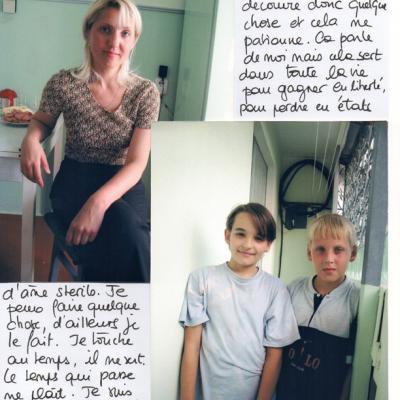 découvre donc quelque
chose et cela me
pationne. Ca parle
de moi mais cela sert
dans toute la vie
pour gagner en liberté,
pour perdre en états
d'âme sterils. Je
peux faire quelque
chose, d'ailleurs je
le fait. Je touche
au temps, il
Le temps qui passe
me plait. Je suis